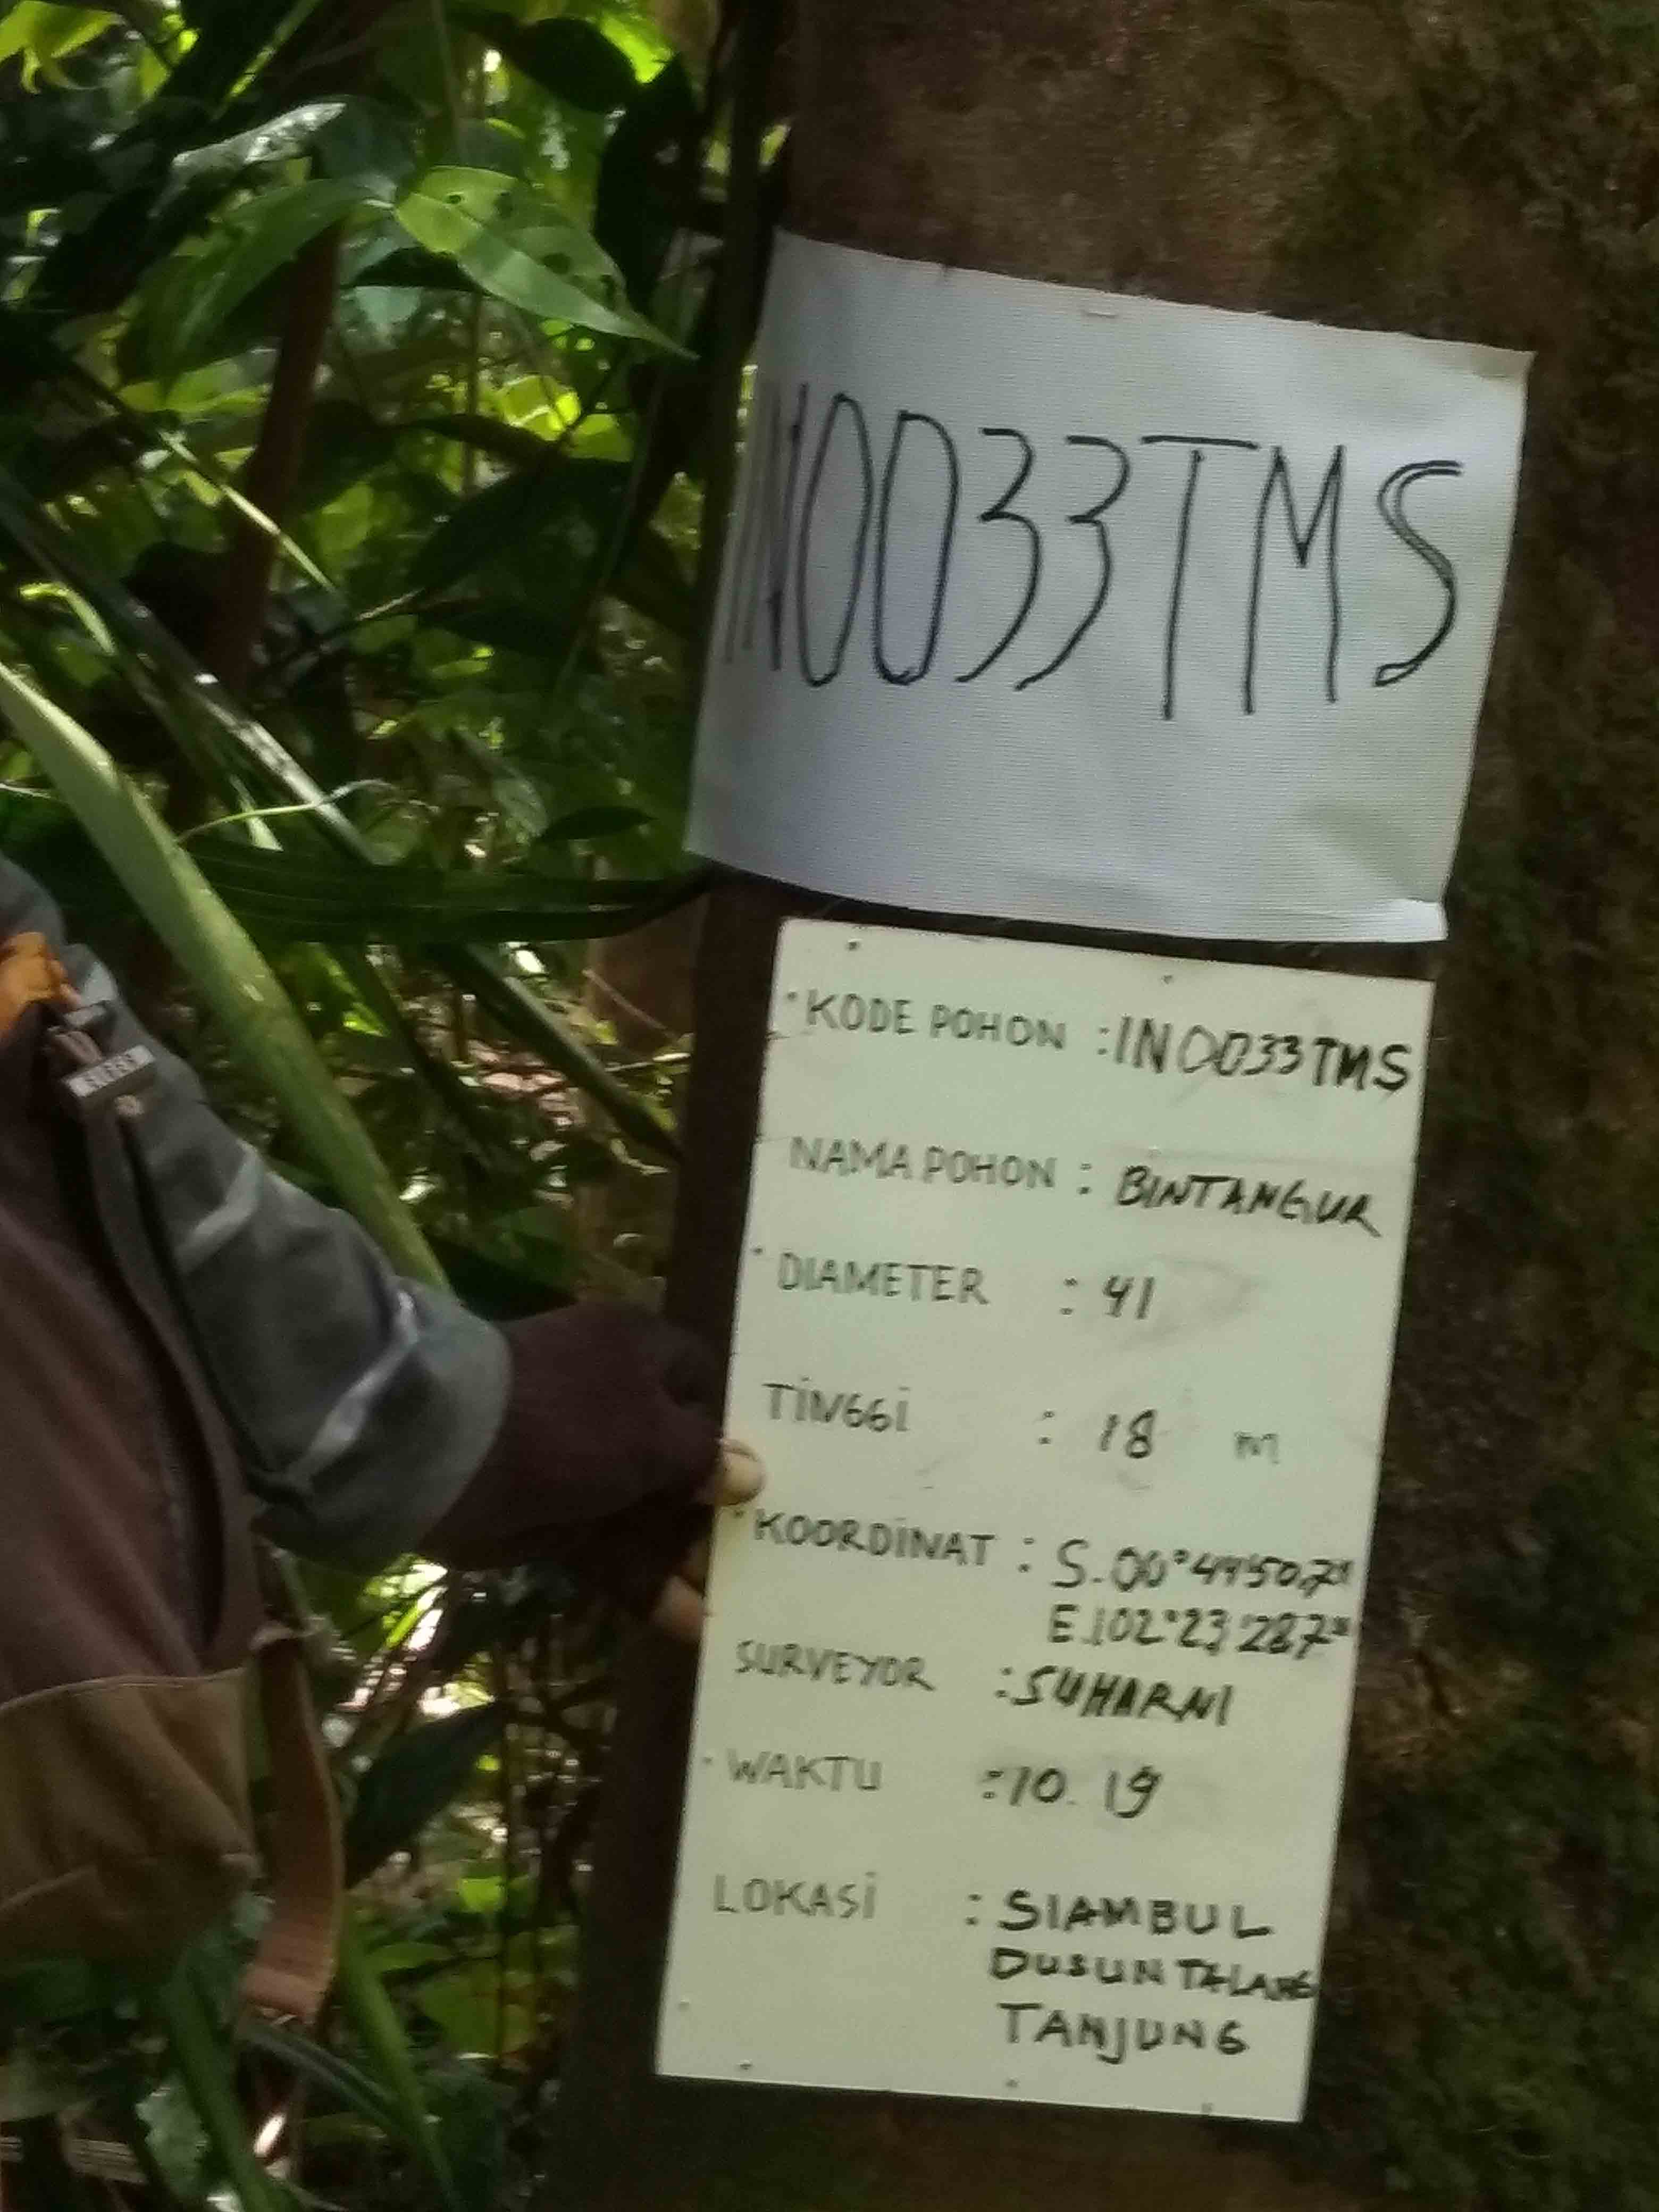 IN0033TMS
KODE POHON : IN0033TMS
NAMA POHON : BINTANGUR
DIAMETER : 41
TINGGI : 18 m
KOORDINAT : S.00°
E.102°23,287"
SURVEYOR : SUHARNI
WAKTU : 10.19
LOKASI : SIAMBUL
DUSUN TALANG
TANJUNG